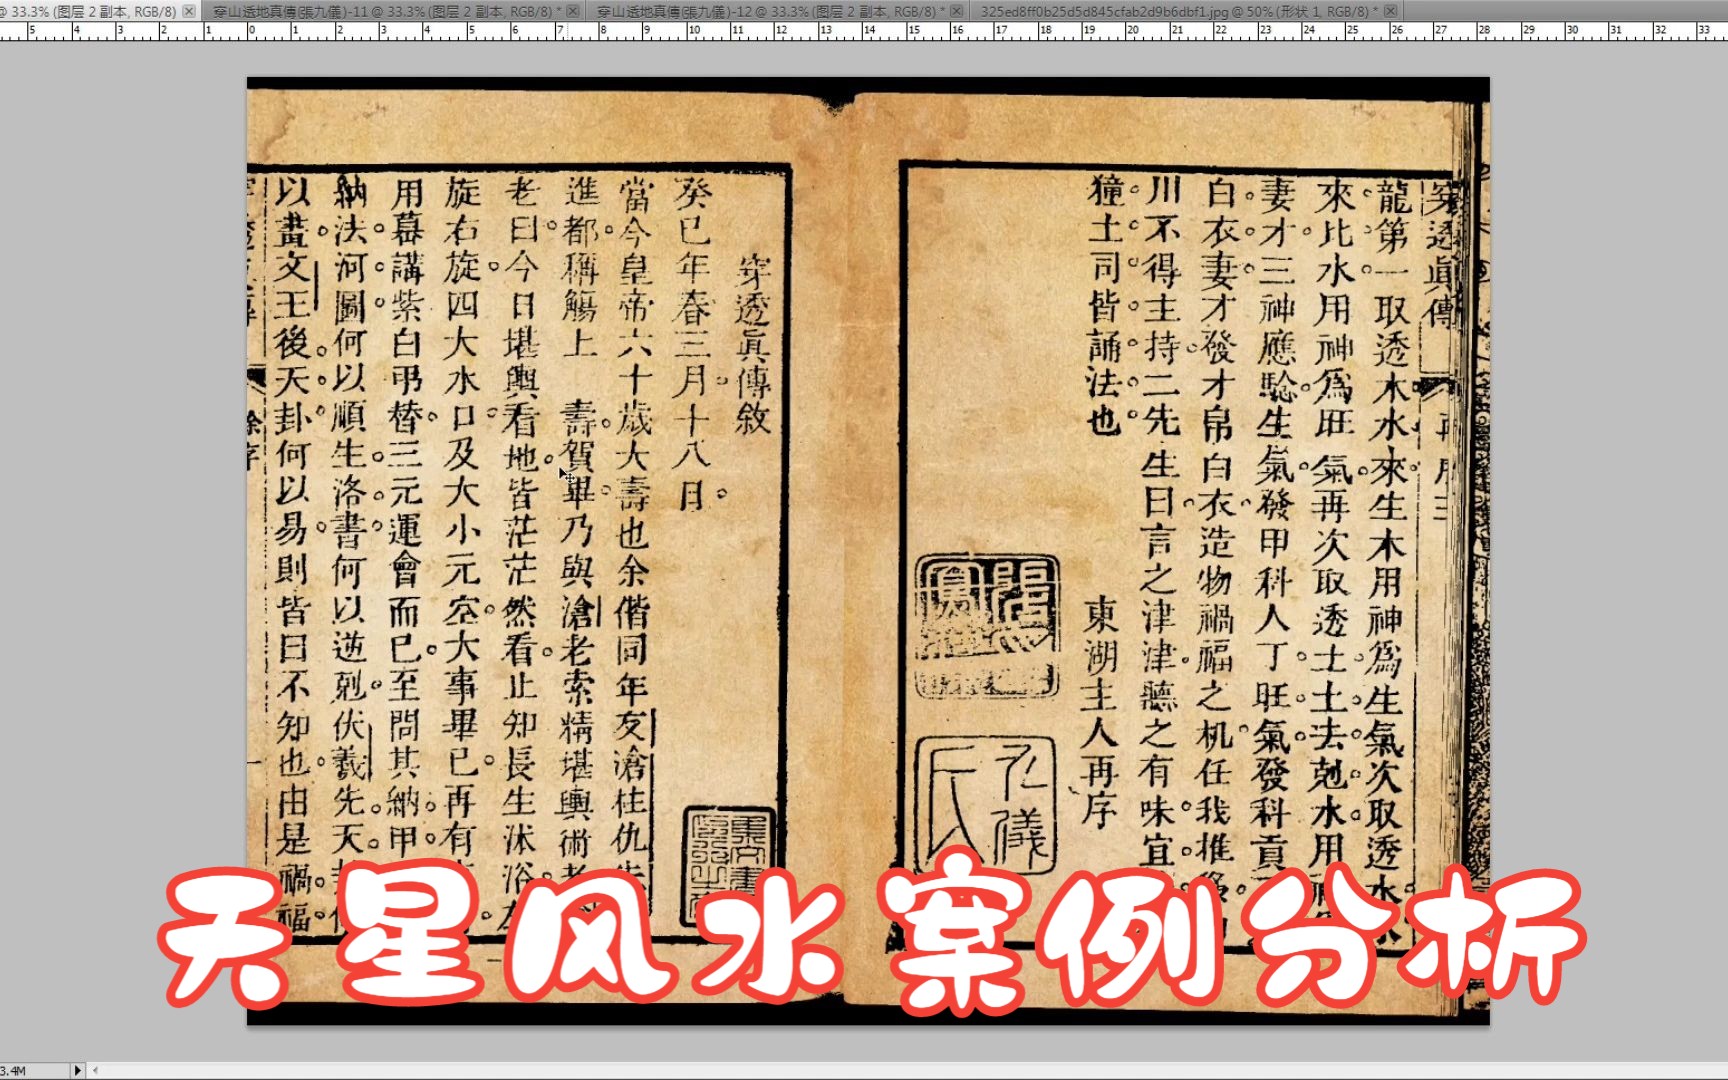 @ 33.3% (图层 2 副本, RGB/8)
穿山透地真傳(張九儀)-11 @ 33.3% (图层 2 副本, RGB/8) *
穿山透地真傳(張九儀)-12 @ 33.3% (图层 2 副本, RGB/8) *
325ed8ff0b25d5d845cfab2d9b6dbf1.jpg @ 50% (形状 1, RGB/8) *
5 4 3 2 1 0 1 2 3 4 5 6 7 8 9 10 11 12 13 14 15 16 17 18 19 20 21 22 23 24 25 26 27 28 29 30 31 32 33
穿透眞傳
再序
龍第一取透水水來生木用神爲生氣次取透水
來比水用神爲旺氣再次取透土土去剋水用
妻才三神應驗生氣發甲科人丁旺氣發科貢
白衣妻才發才帛白衣造物禍福之机任我推
川不得主持二先生曰言之津津聽之有味宜
獞土司皆誦法也
東湖主人再序
九儀
氏
穿透眞傳敘
癸巳年春三月十八日
當今皇帝六十歲大壽也余偕同年友滄柱仇
進都稱觴上 壽賀畢乃與滄老索精堪輿術者
老曰今日堪輿看地皆茫茫然看止知長生沐浴
旋右旋四大水口及大小元空大事畢已再有
用暮講紫白弔替三元運會而已至問其納甲
納法河圖何以順生洛書何以逆剋伏羲先天
以畫文王後天卦何以易則皆曰不知也由是禍福
天星风水案例分析
3.4M